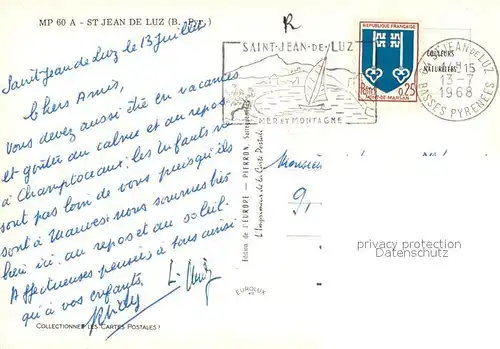 MP 60 A - ST JEAN DE LUZ (B.-Pyr.)
Saint-Jean de Luz le 13 Juillet
Chers Amis,
Vous devez aussi être en vacances
et goûter au calme et au repos
à Champtoceaux. les Enfants ne
sont pas loin de vous puisqu'ils
sont à Mauves. nous sommes très
bien ici. au repos et au soleil.
Affectueuses pensées à tous ainsi
qu'à vos enfants.
COLLECTIONNEZ LES CARTES POSTALES !
R
SAINT-JEAN-DE-LUZ
MER ET MONTAGNE
REPUBLIQUE FRANÇAISE
Postes 0,25
MONT-DE-MARSAN
COULEURS
NATURELLES
ST JEAN DE LUZ
15
13-7
1968
BASSES PYRENEES
Edition de l'EUROPE - PIERRON, Sarreguemines
L'Imprimeur de la Carte Postale
EUROLUX
Monsieur
9,
privacy protection
Datenschutz